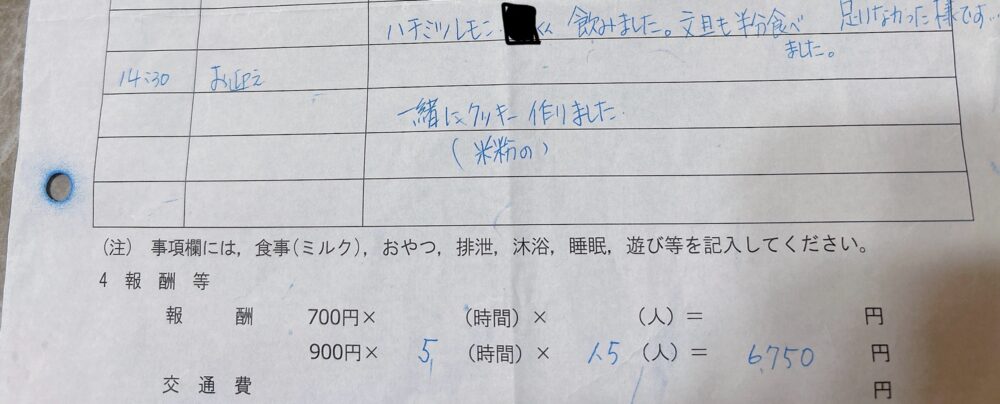 足りなかった様です…
ハチミツレモン 飲みました。文旦も半分食べ
ました。
14:30 お迎え
一緒にクッキー作りました
(米粉の)
(注) 事項欄には,食事(ミルク),おやつ,排泄,沐浴,睡眠,遊び等を記入してください。
4 報酬等
報酬 700円× (時間)× (人)= 円
900円× 5 (時間)× 1.5 (人)= 6,750 円
交通費 円